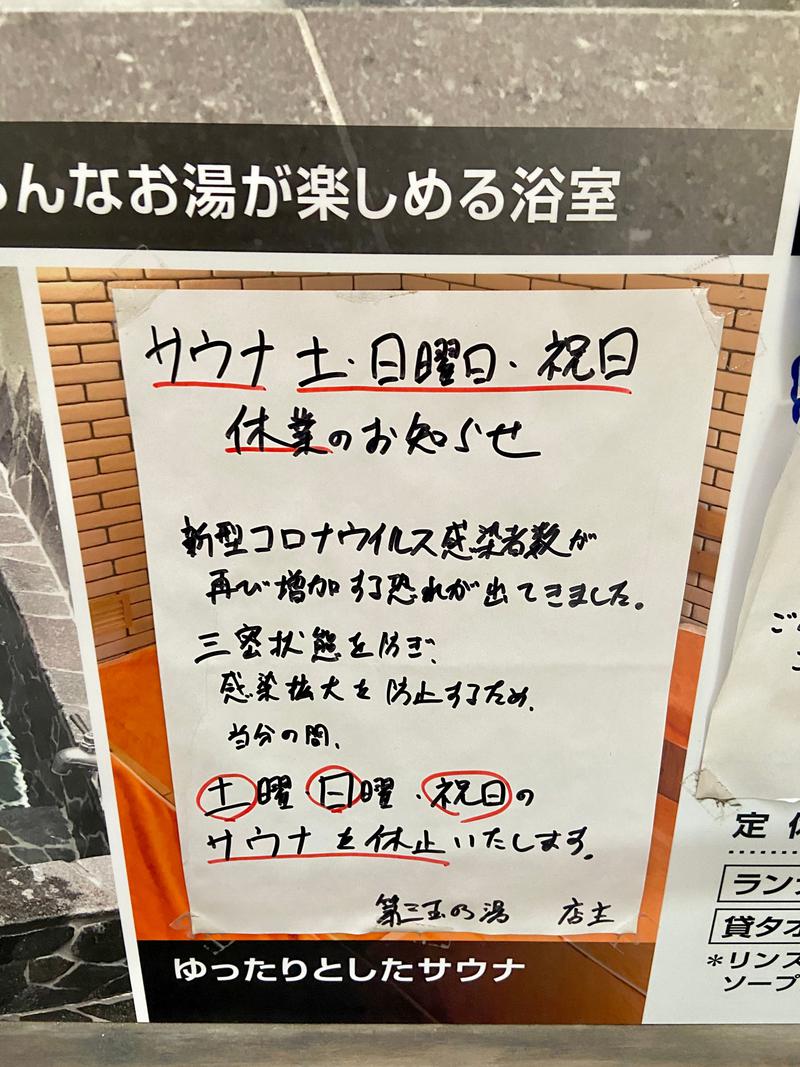 んなお湯が楽しめる浴室
サウナ 土・日曜日・祝日
休業のお知らせ
新型コロナウイルス感染者数が
再び増加する恐れが出てきました。
三密状態を防ぎ、
感染拡大を防止するため、
当分の間、
土曜・日曜・祝日の
サウナを休止いたします。
第三玉の湯 店主
ゆったりとしたサウナ
定
ラン
貸タオ
*リンス
ソープ